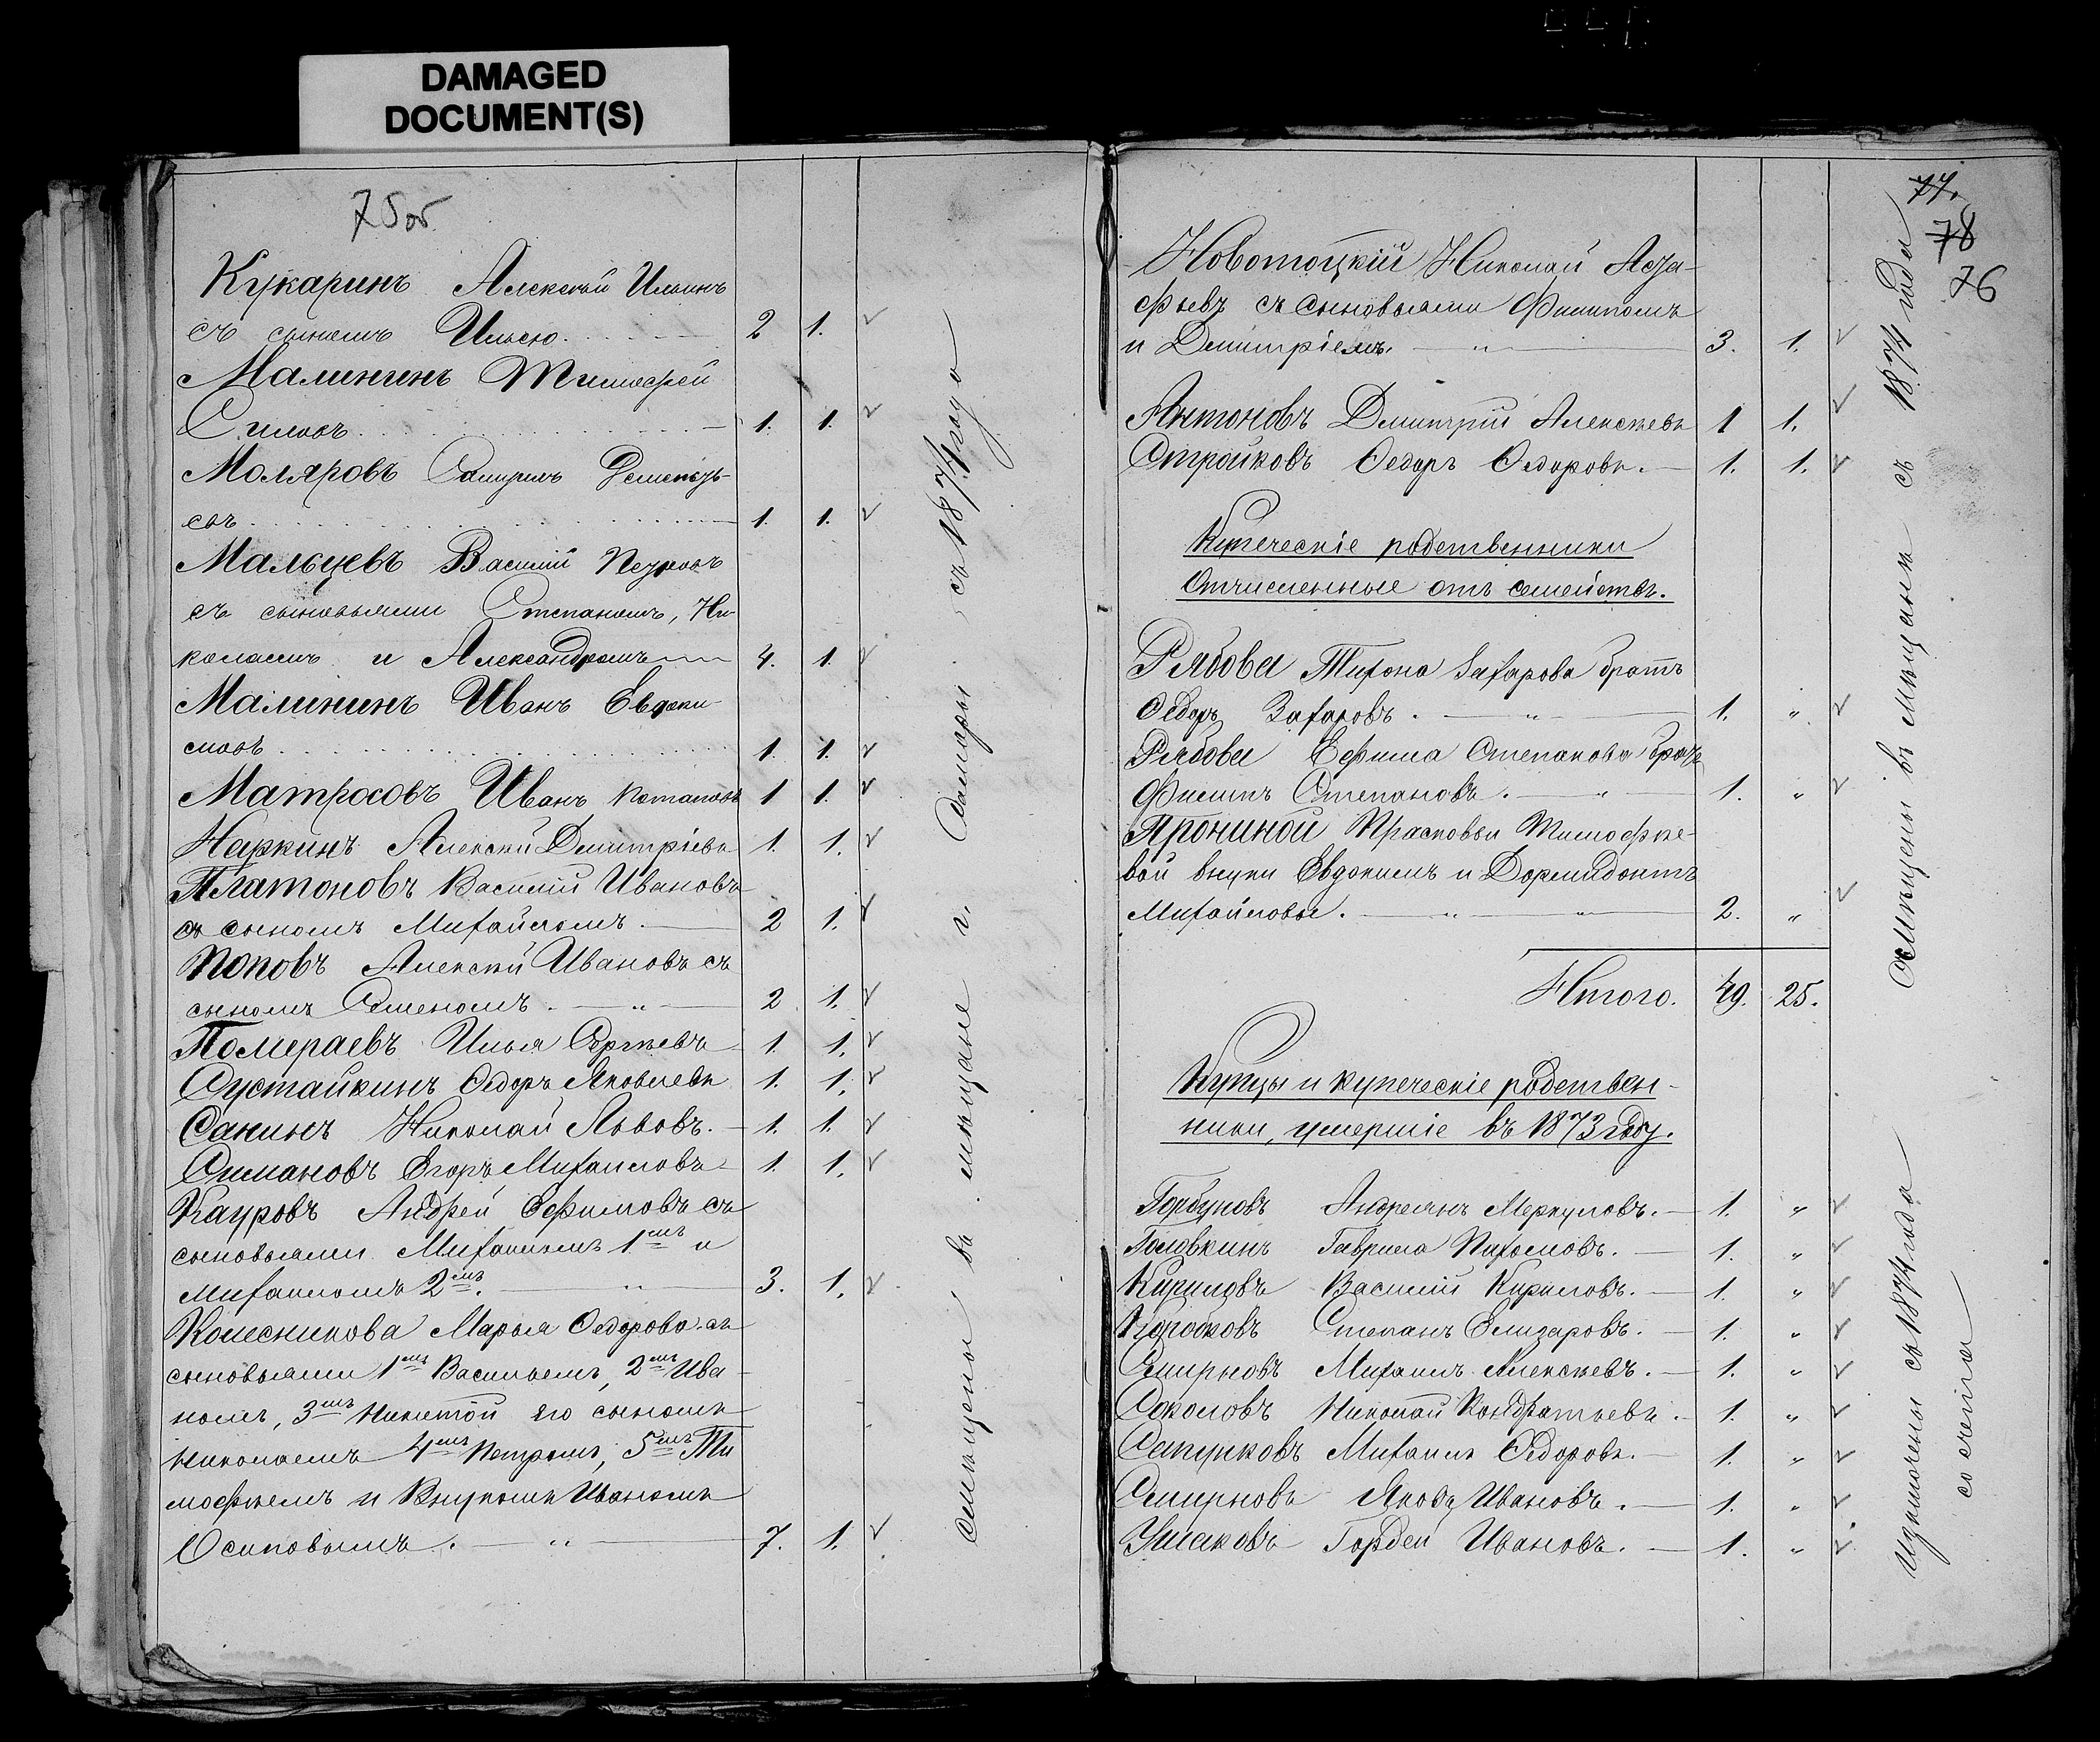 DAMAGED
DOCUMENT(S)
75об.
Кукаринъ Алексѣй Ильинъ
съ сыномъ Ильею. 2 1.
Малининъ Тимофей
Силовъ 1. 1.
Моляровъ
1. 1.
Мальцевъ Василій Петровъ
съ сыновьями Степаномъ, Ни-
колаемъ и Александромъ 4. 1.
Малининъ Иванъ Евдоки-
мовъ 1. 1.
Матросовъ Иванъ Потаповъ 1 1.
Наркинъ Алексѣй Дмитріевъ 1. 1.
Платоновъ Василій Ивановъ
съ сыномъ Михайломъ. 2 1.
Поповъ Алексѣй Ивановъ съ
сыномъ Семеномъ. „ 2 1.
Помераевъ Илья Сергѣевъ 1. 1.
Сустайкинъ Ѳедоръ Яковлевъ 1. 1.
Санинъ Николай Львовъ. 1. 1.
Симановъ Егоръ Михайловъ 1. 1.
Кауровъ Андрей Ефимовъ съ
сыновьями Михаиломъ 1мъ и
Михаиломъ 2мъ. „ 3. 1.
Колесникова Марья Ѳедорова съ
сыновьями 1мъ Васильемъ, 2мъ Ива-
номъ, 3мъ Никитой его сыномъ
Николаемъ 4мъ Петромъ, 5мъ Ти
мофѣемъ и внукомъ Иваномъ
Осиповымъ. „ 7. 1.
Смѣщены въ мѣщане г. Самары съ 1874 года
77.
78
76
Новотоцкій Николай Аста-
фьевъ съ сыновьями Филипомъ
и Дмитріемъ. „ 3. 1.
Антоновъ Дмитрій Алексѣевъ 1 1.
Стройковъ Ѳедоръ Ѳедоровъ. 1. 1.
Купеческіе родственники
Отчисленные отъ семействъ.
Рябова Тихона Захарова братъ
Ѳедоръ Захаровъ. „ 1. „
Рябова Ефима Степанова братъ
Филипъ Степановъ. „ 1. „
Прониной Прасковьи Тимофѣе-
вой внуки Евдокимъ и Дормидонтъ
Михайловы. „ „ 2. „
Итого. 49. 25.
Купцы и купеческіе родствен-
ники, умершіе въ 1873 году.
Горбуновъ Андреянъ Меркуловъ. 1. „
Головкинъ Гаврила Пахомовъ. 1. „
Кириловъ Василій Кириловъ. 1. „
Коробковъ Степанъ Елизаровъ. 1. „
Смирновъ Михаилъ Алексѣевъ. 1. „
Соколовъ Николай Кондратьевъ. 1. „
Сапунковъ Михаилъ Ѳедоровъ. 1. „
Смирновъ Яковъ Ивановъ. 1. „
Ушаковъ Гордей Ивановъ. 1. „
Смѣщены въ мѣщане съ 1874 года
Исключены съ 1874 года
со счета